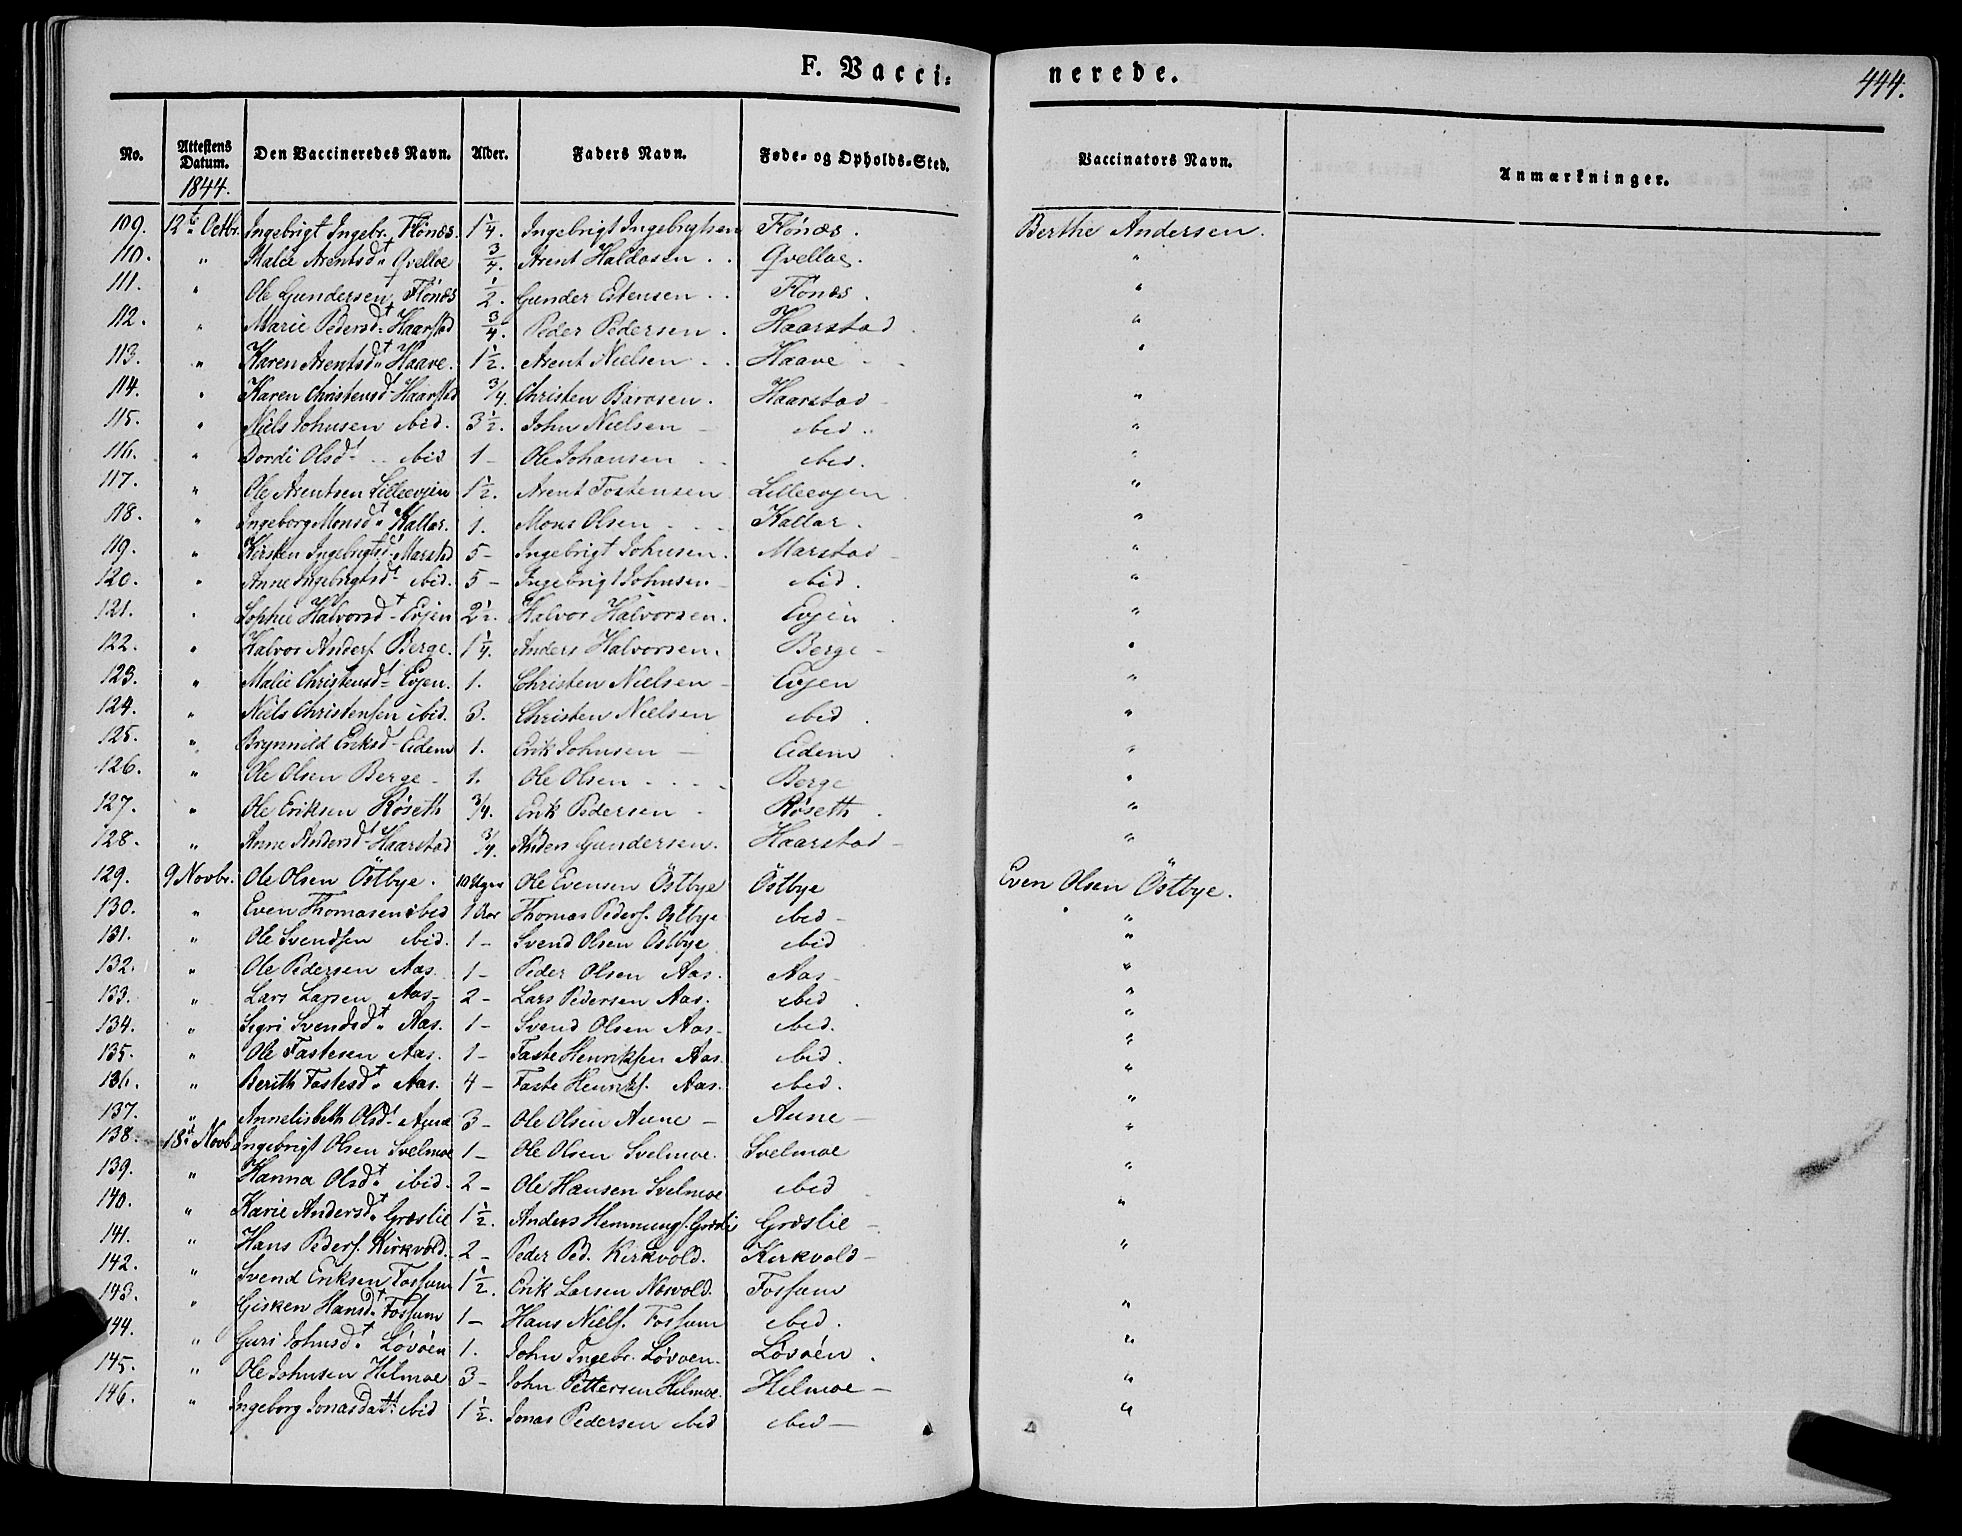 F. Vacci= nerede. 444.
No. Attestens Datum. Den Vaccineredes Navn. Alder. Faders Navn. Føde- og Opholds-Sted. Vaccinators Navn. Anmærkninger.
1844.
109. 12te Octbr. Ingebrigt Ingebr. Flönæs. 1 1/4. Ingebrigt Ingebrigtsen Flönæs. Berthe Andersen.
110. " Malie Arentsdt. Qvelloe 3/4. Arent Haldosen . . Qvelloe. "
111. " Ole Gundersen Flönæs 1/2. Gunder Estensen . . Flönæs. "
112. " Marie Pedersdt. Haarstad 3/4. Peder Pedersen . Haarstad. "
113. " Karen Arentsdt. Haave. 1 1/2. Arent Nielsen . . Haave - "
114. " Karen Christensd. Haarstad 3/4. Christen Barosen. Haarstad - "
115. " Niels Johnsen ibid. 3 1/2. John Nielsen - ibid. "
116. " Dordi Olsdt. .. ibid 1 - Ole Johansen . . ibid. "
117. " Ole Arentsen Lilleevjen 1 1/2. Arent Tostensen Lilleevjen. "
118. " Ingeborg Monsdt. Kallar. 1. Mons Olsen . . . Kallar. "
119. " Kirsten Ingebrigtsd. Marstad 5 - Ingebrigt Johnsen. Marstad - "
120. " Anne Ingebrigtsdt. ibid. 5 - Ingebrigt Johnsen - ibid. "
121. " Sophie Halvorsdt. Evjen 2 1/2. Halvor Halvorsen. Evjen. "
122. " Halvor Anders. Berge. 1 1/4. Anders Halvorsen. Berge - "
123. " Malie Christensdt. Evjen. 1. Christen Nielsen - Evjen "
124. " Niels Christensen ibid. 3. Christen Nielsen ibid. "
125. " Brynnild Eriksd. Eidem 1. Erik Johnsen - Eidem. "
126. " Ole Olsen Berge - 1. Ole Olsen . . . . Berge "
127. " Ole Eriksen Röseth 3/4. Erik Pedersen - Röseth. "
128. " Anne Andersdt. Haarstad 3/4. Anders Gundersen. Haarstad - "
129. 9 Novbr. Ole Olsen Östbye. 10 Uger Ole Evensen Östbye Östbye Even Olsen Östbye.
130. " Even Thomasen ibid 1 Aar Thomas Peders. Ostbye ibid - "
131. " Ole Svendsen ibid. 1 - Svend Olsen Östbye ibid "
132. " Ole Pedersen Aas. 1 - Peder Olsen Aas. Aas - "
133. " Lars Larsen Aas - 2 - Lars Pedersen Aas. ibid. "
134. " Sigri Svendsdt. Aas. 1 - Svend Olsen Aas - ibid. "
135. " Ole Fastesen Aas. 1 - Faste Henriksen Aas. ibid. "
136. " Berith Fastesdt. Aas. 4 - Faste Henriks. Aas. ibid. "
137. " Annelisbeth Olsdt. Aune 3 - Ole Olsen Aune - Aune - "
138. 18de Novb. Ingebrigt Olsen Svelmoe 1 - Ole Olsen Svelmoe. Svelmoe "
139. " Hanna Olsdt. ibid. 2 - Ole Hansen Svelmoe ibid "
140. " Karie Andersdt. Græslie 1 1/2. Anders Hemmings. Græslie Græslie - "
141. " Hans Peders. Kirkvold. 2 - Peder Ped. Kirkvold. Kirkvold - "
142. " Svend Eriksen Fossum 1 1/2. Erik Larsen Næsvold. Fossum
143. " Gisken Hansdt. Fossum 1 - Hans Niels. Fossum ibid. "
144. " Guri Johnsdt. Lövöen 1. John Ingebr. Lövoen. Lövöen. "
145. " Ole Johnsen Hilmoe 3 - John Pettersen Hilmoe. Hilmoe - "
146. " Ingeborg Jonasdatt. ibid 1 1/2. Jonas Pedersen ibid ibid - "